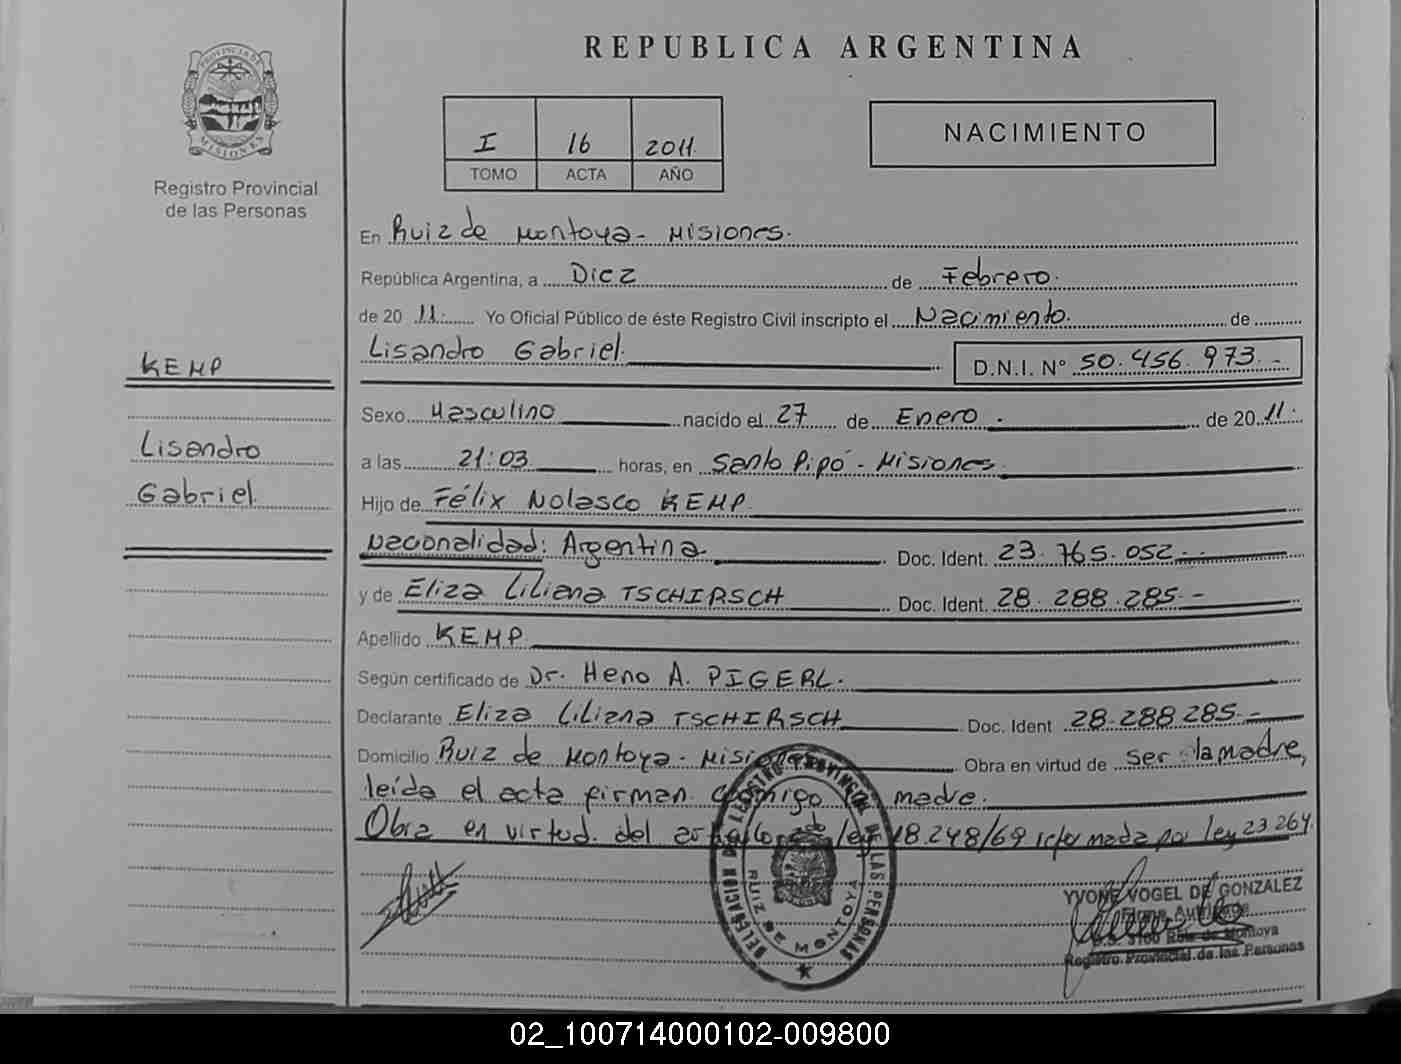 PROVINCIA DE
MISIONES
Registro Provincial
de las Personas
KEMP
Lisandro
Gabriel
REPUBLICA ARGENTINA
I 16 2011
TOMO ACTA AÑO
NACIMIENTO
En Ruiz de Montoya - Misiones.
República Argentina, a Diez de Febrero.
de 20 11. Yo Oficial Público de éste Registro Civil inscripto el Nacimiento. de
Lisandro Gabriel. D.N.I. N° 50.456.973.-
Sexo Masculino nacido el 27 de Enero. de 20 11.
a las 21:03 horas, en Santo Pipó - Misiones.
Hijo de Félix Nolasco KEMP.
Nacionalidad: Argentina Doc. Ident. 23.765.052.-
y de Eliza Liliana TSCHIRSCH Doc. Ident. 28.288.285.-
Apellido KEMP
Según certificado de Dr. Heno A. PIGERL.
Declarante Eliza Liliana TSCHIRSCH Doc. Ident 28.288.285.-
Domicilio Ruiz de Montoya - Misiones Obra en virtud de ser la madre,
leída el acta firman conmigo madre.
Obra en virtud del ley 18.248/69 reformada por ley 23264.
DELEGACION DEL REGISTRO PROVINCIAL DE LAS PERSONAS
RUIZ DE MONTOYA
YVONE VOGEL DE GONZALEZ
Firma Autorizada
D.S. 3100 Ruiz de Montoya
Registro Provincial de las Personas
02_100714000102-009800